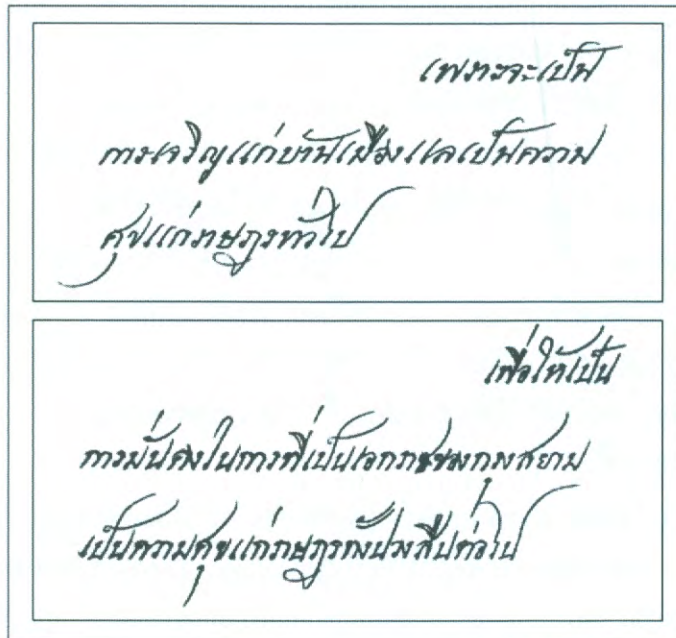 เพราะจะเป็น
การเจริญแก่บ้านเมืองแลเป็นความ
ศุขแก่ราษฎรทั่วไป
เพื่อให้เป็น
การมั่นคงในการที่เป็นเอกราชของกรุงสยาม
เป็นความศุขแก่ราษฎรทั้งปวงสืบทั่วไป